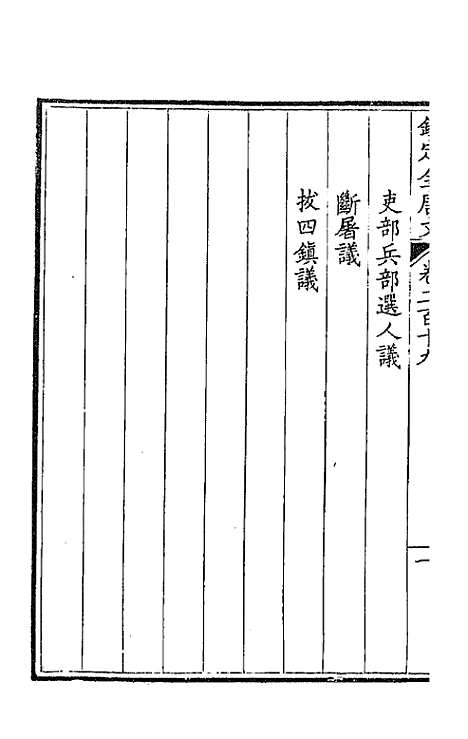 欽定全唐文卷二百十九
一
吏部兵部選人議
斷屠議
拔四鎮議